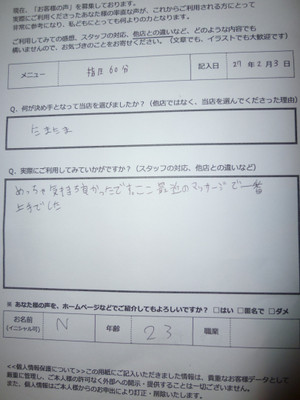 現在、「お客様の声」を募集しております。
実際にご利用くださったあなた様の率直な声が、これからご利用される方にとって
非常に参考になり、私どもにとっても何よりの力となります。
ご利用してみての感想、スタッフの対応、他店との違いなど、どのような内容でも
構いませんので、お気づきのことをお寄せください。(文章でも、イラストでも大歓迎です)
メニュー 指目60分 記入日 27年2月3日
Q. 何が決め手となって当店を選びましたか?(他店ではなく、当店を選んでくださった理由)
たまたま
Q. 実際にご利用してみていかがですか?(スタッフの対応、他店との違いなど)
めっちゃ気持ち良かったです。ここ最近のマッサージで一番
上手でした
※ あなた様の声を、ホームページなどでご紹介してもよろしいですか? □はい □匿名で □ダメ
お名前 N 年齢 23 職業
(イニシャル可)
<<個人情報保護について>>この用紙にご記入いただきました情報は、貴重なお客様データとして
厳重に管理し、ご本人様の許可なく外部への開示・提供することは一切ございません。
また、個人情報はご本人様からのお申出により訂正・削除いたします。